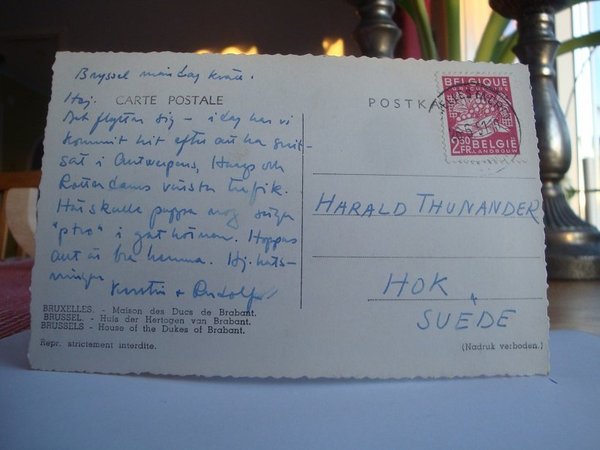 Bryssel måndag kväll.
Hej.
CARTE POSTALE
POSTKA
Det flyter sig – idag har vi
kommit hit efter att ha
satt i Antwerpens, Haags och
Rotterdams värsta trafik.
Här skulle pappa nog säga
"ptro" i gathörnen. Hoppas
allt är bra hemma. Hj. häls-
ningar
Kerstin + Rudolf
BELGIQUE
AGRICULTURE
2,50
FR.
BELGIË
LANDBOUW
HARALD THUNANDER
HOK
SUEDE
BRUXELLES. - Maison des Ducs de Brabant.
BRUSSEL. - Huis der Hertogen van Brabant.
BRUSSELS - House of the Dukes of Brabant.
Repr. strictement interdite.
(Nadruk verboden.)